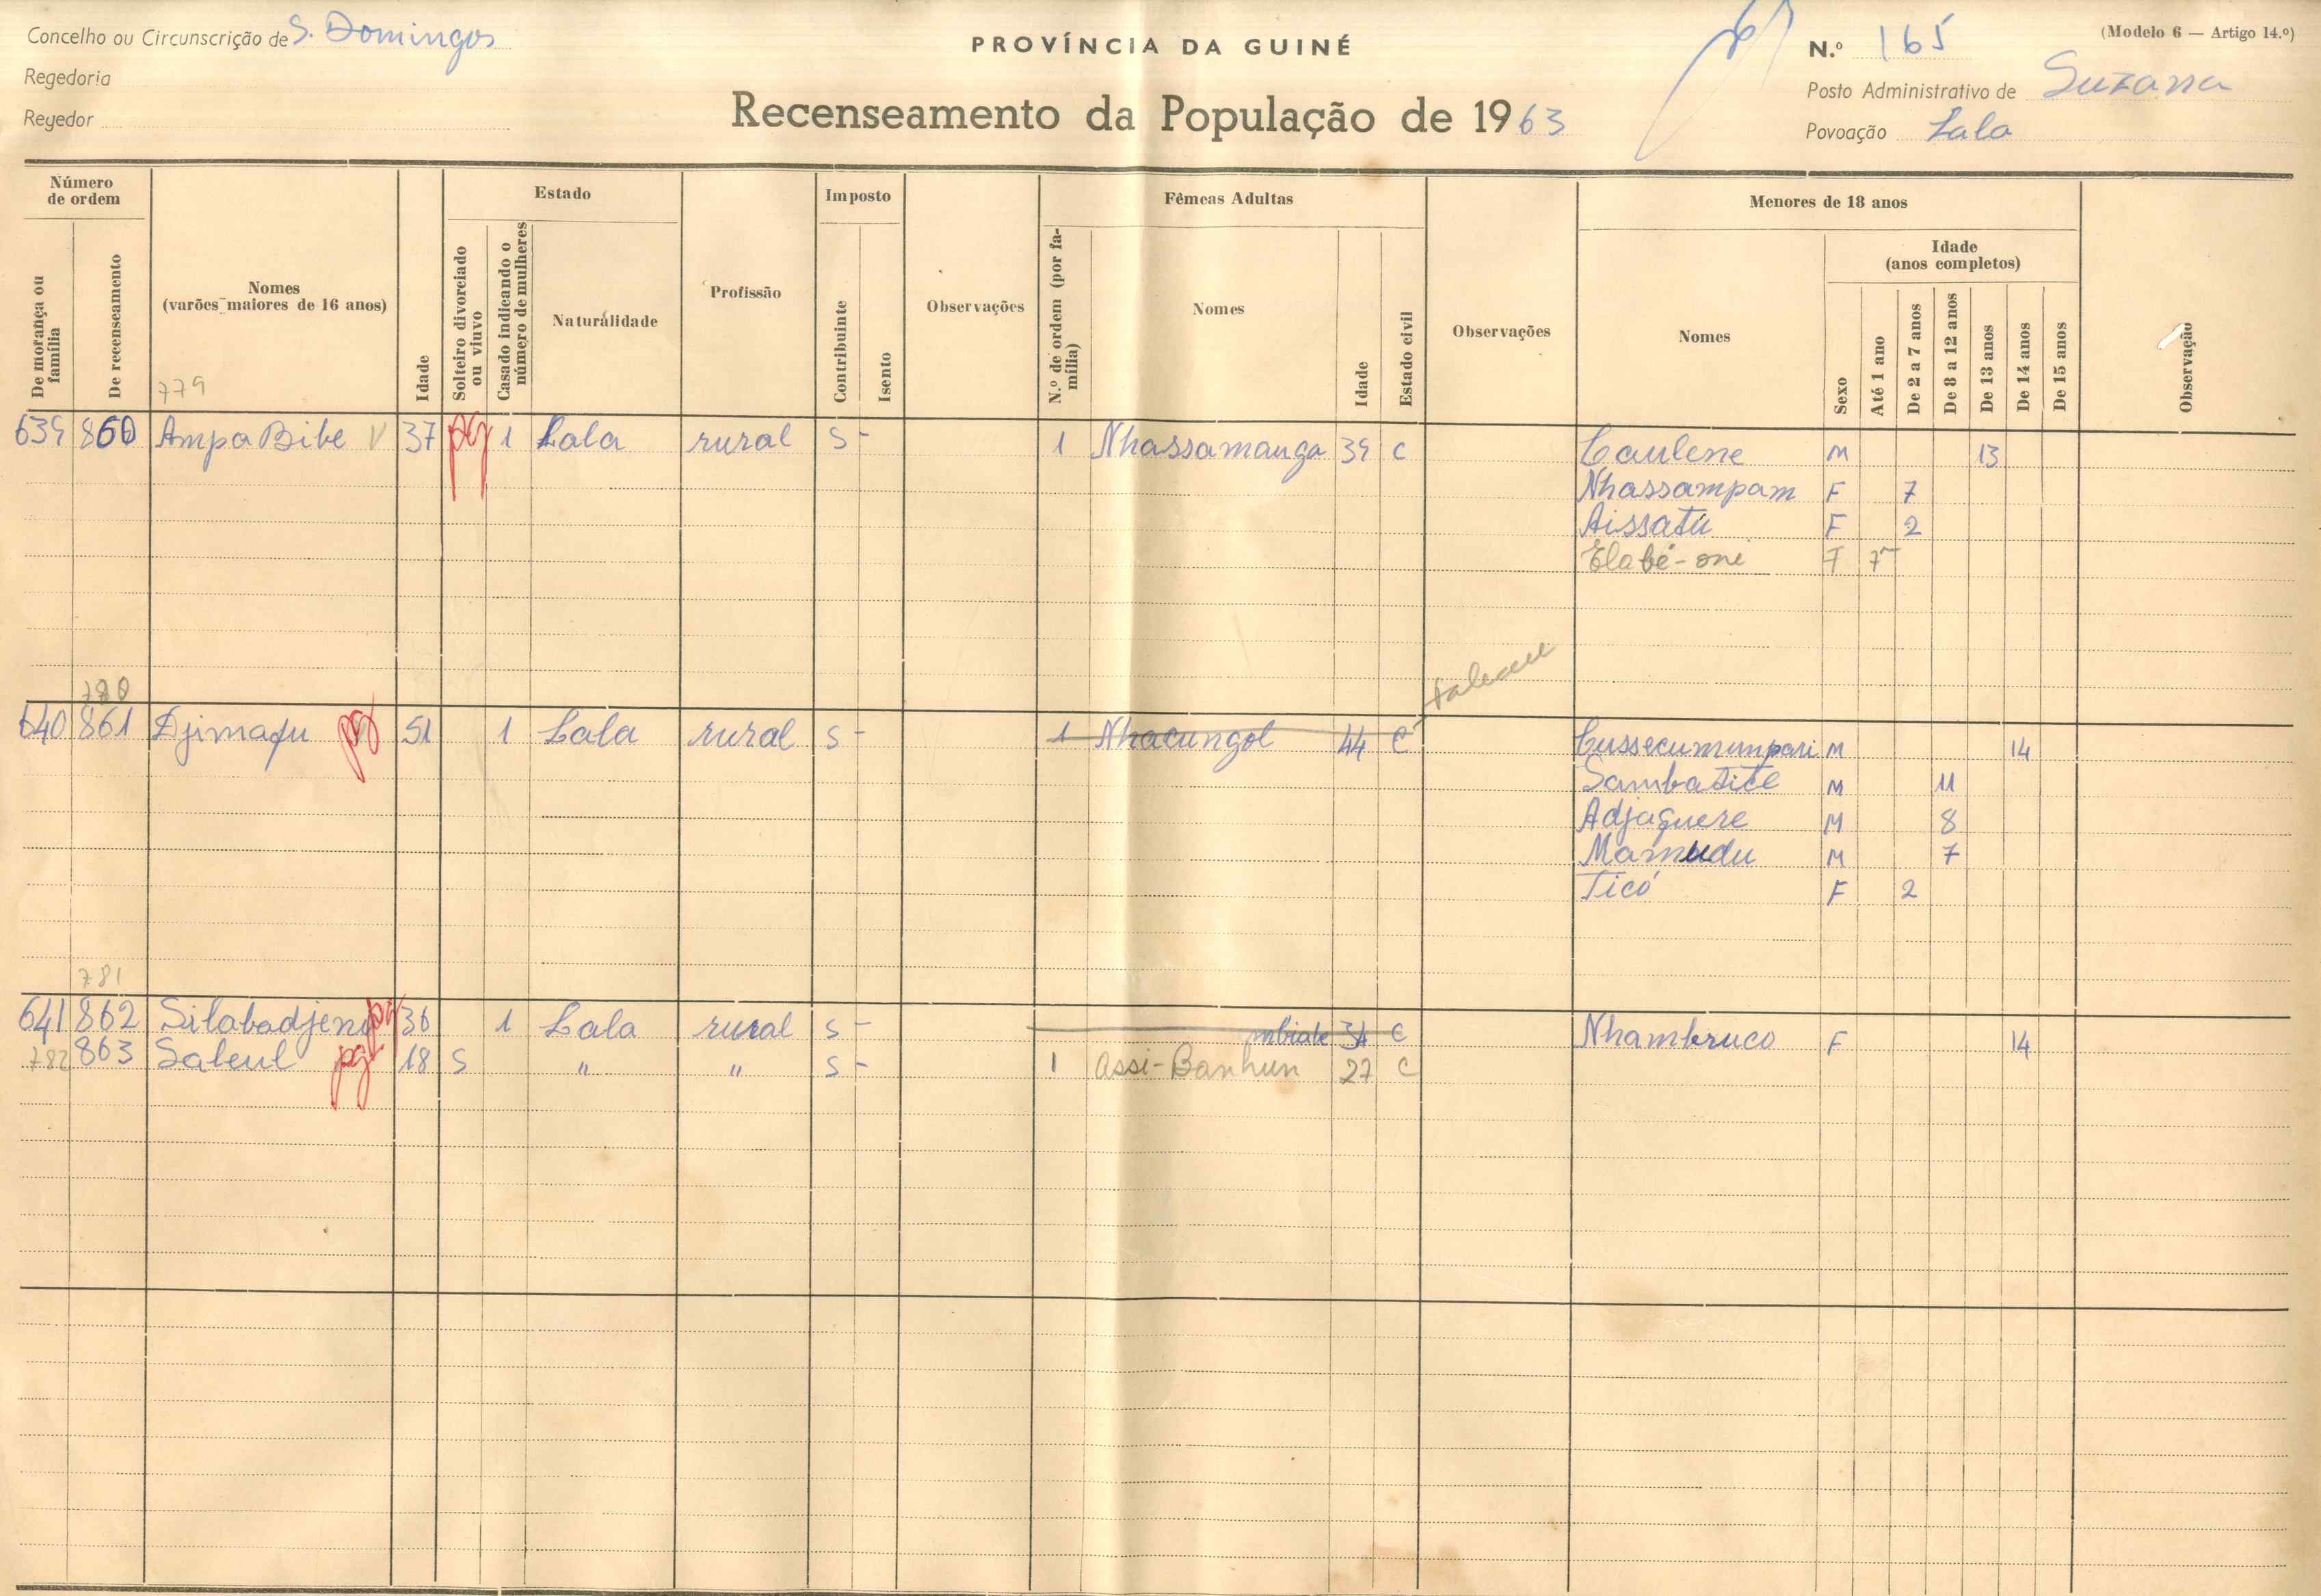 Concelho ou Circunscrição de S. Domingos
Regedoria
Reyedor
PROVÍNCIA DA GUINÉ
Recenseamento da População de 1963
N.º 165
(Modelo 6 — Artigo 14.º)
Posto Administrativo de Suzana
Povoação Lala
Número de ordem
De morança ou família
De recenseamento
Nomes
(varões maiores de 16 anos)
779
Idade
Estado
Solteiro divorciado ou viuvo
Casado indicando o número de mulheres
Naturalidade
Profissão
Imposto
Contribuinte
Isento
Observações
Fêmeas Adultas
N.º de ordem (por família)
Nomes
Idade
Estado civil
Observações
Menores de 18 anos
Nomes
Sexo
Idade
(anos completos)
Até 1 ano
De 2 a 7 anos
De 8 a 12 anos
De 13 anos
De 14 anos
De 15 anos
Observação
639 860 Ampa Bibe V 37 pg 1 Lala rural S - 1 Nhassamanga 39 C Caulene M 13
Nhassampam F 7
Aissatu F 2
Elabé-one F
780
640 861 Djimagu pg 51 1 Lala rural S - 1 Nhacungol 44 C Cussecumunpari M 14
Sambatice M 11
Adjaguere M 8
Mamudu M 7
Ticó F 2
781
641 862 Silabadjeno pg 36 1 Lala rural S - mbiate 34 C Nhambruco F 14
782 863 Saleul pg 18 S " " S - 1 Assi-Banhun 27 C